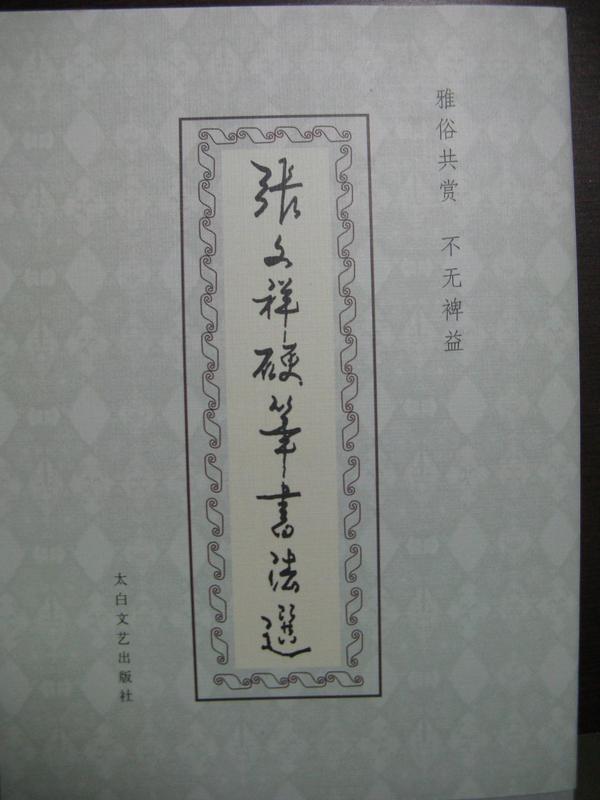 雅俗共赏 不无裨益
張文祥硬筆書法選
太白文艺出版社